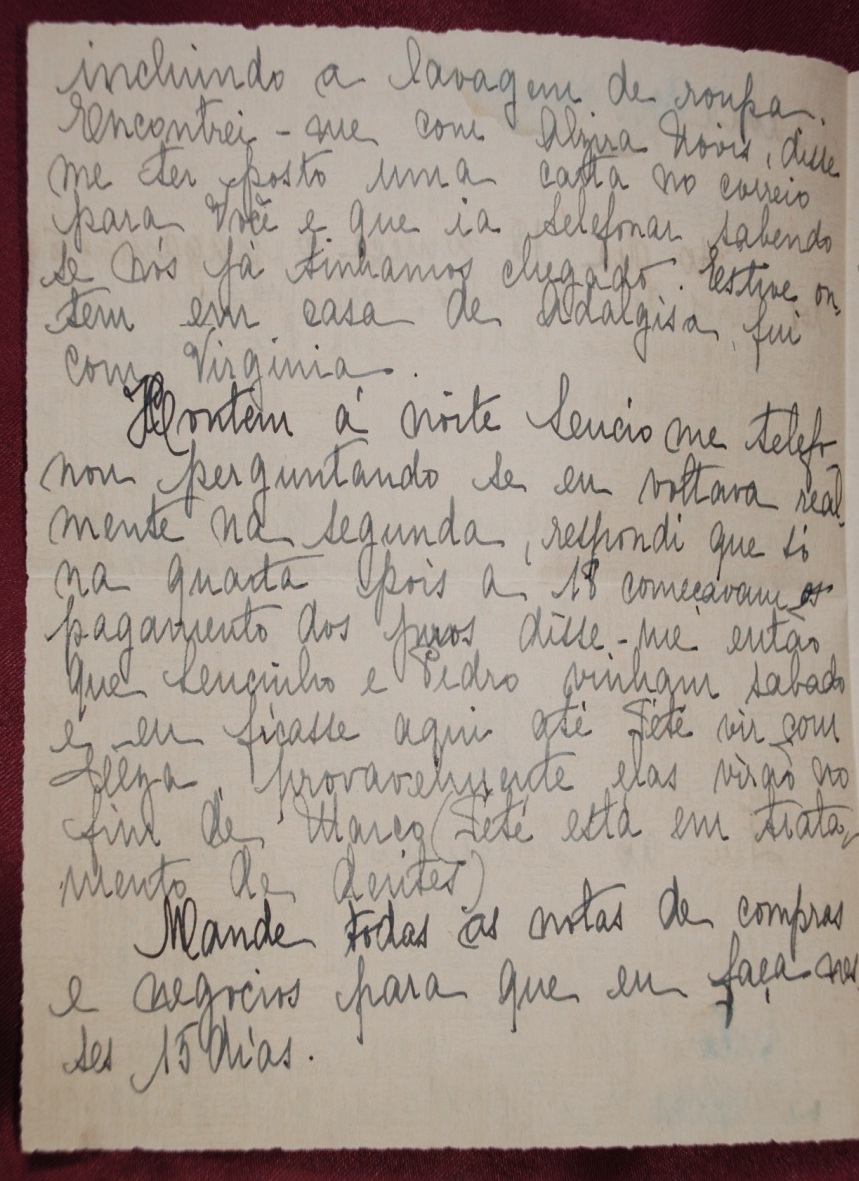 incluindo a lavagem de roupa.
Encontrei-me com Alzira Novis, disse
me ter posto uma carta no correio
para Você e que ia telefonar sabendo
se nós já tinhamos chegado. Estive on,
tem em casa de Adalgisa, fui
com Virginia.
Hontem á noite Leucio me telefo
nou perguntando se eu voltava real
mente na segunda, respondi que só
na quarta pois a 18 começavam os
pagamento dos juros disse-me então
que Leucinho e Pedro vinham sabado
e eu ficasse aqui até Tété vir com
provavelmente elas virão no
fim de Março (Tété está em trata,
mento de dentes)
Mande todas as notas de compras
e negocios para que eu faça nes
ses 15 dias.